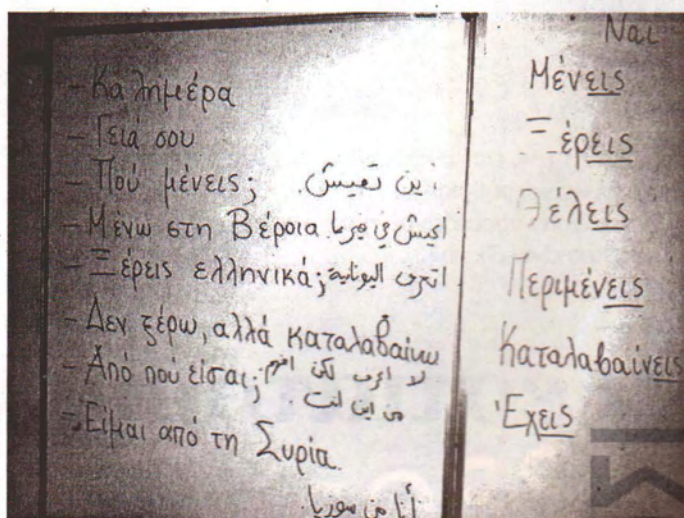 - Καλημέρα
- Γειά σου
- Πού μένεις; اين تعيش.
- Μένω στη Βέροια اعيش في فيريا
- Ξέρεις ελληνικά; اتعرف اليونانية
- Δεν ξέρω, αλλά καταλαβαίνω
لا اعرف لكن افهم
- Από πού είσαι;
من اين انت.
- Είμαι από τη Συρία.
أنا من سوريا.
Ναι
Μένεις
Ξέρεις
Θέλεις
Περιμένεις
Καταλαβαίνεις
Έχεις